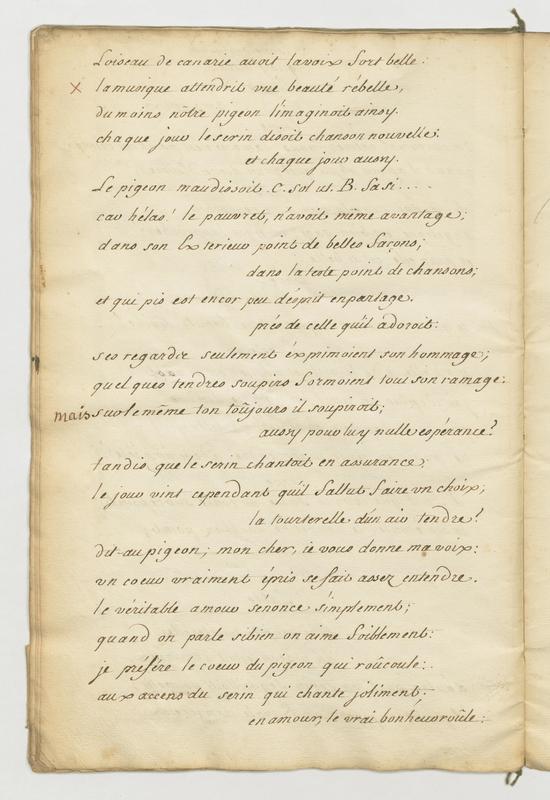 Loiseau de canarie avoit la voix fort belle:
x la musique attendrit vne beauté rébelle,
du moins nôtre pigeon l'imaginoit ainsy.
chaque jour le serin disoit chanson nouvelle;
et chaque jour aussy.
Le pigeon maudissoit C. sol ut. B. fa si....
car hélas! le pauvret, n'avoit même avantage;
dans son Exterieur point de belles façons;
dans la teste point de chansons;
et qui pis est encor peu d'esprit en partage.
prés de celle qu'il adoroit:
ses regards seulement éxprimoient son hommage;
quelques tendres soupirs formoient tout son ramage:
mais sur le même ton toûjours il soupiroit;
aussy pour luy nulle espérance?
tandis que le serin chantoit en assurance;
le jour vint cependant qu'il fallut faire vn choix;
la tourterelle d'un air tendre?
dit au pigeon; mon cher, ie vous donne ma voix:
vn coeur vraiment épris se fait assez entendre.
le véritable amour s'énonce simplement;
quand on parle si bien on aime foiblement:
je préfére le coeur du pigeon qui roûcoule:
aux accens du serin qui chante joliment:
en amour, le vrai bonheur